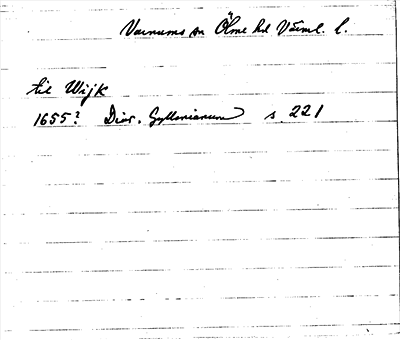 Varnums sn Ölme hd Värml. l.
til Wijk
1655? Diar. Gyllenianum s. 221